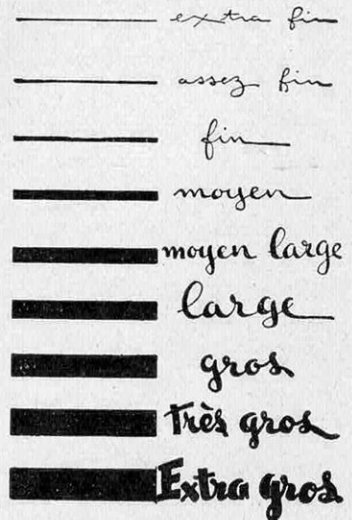 extra fin
assez fin
fin
moyen
moyen large
large
gros
Très gros
Extra gros